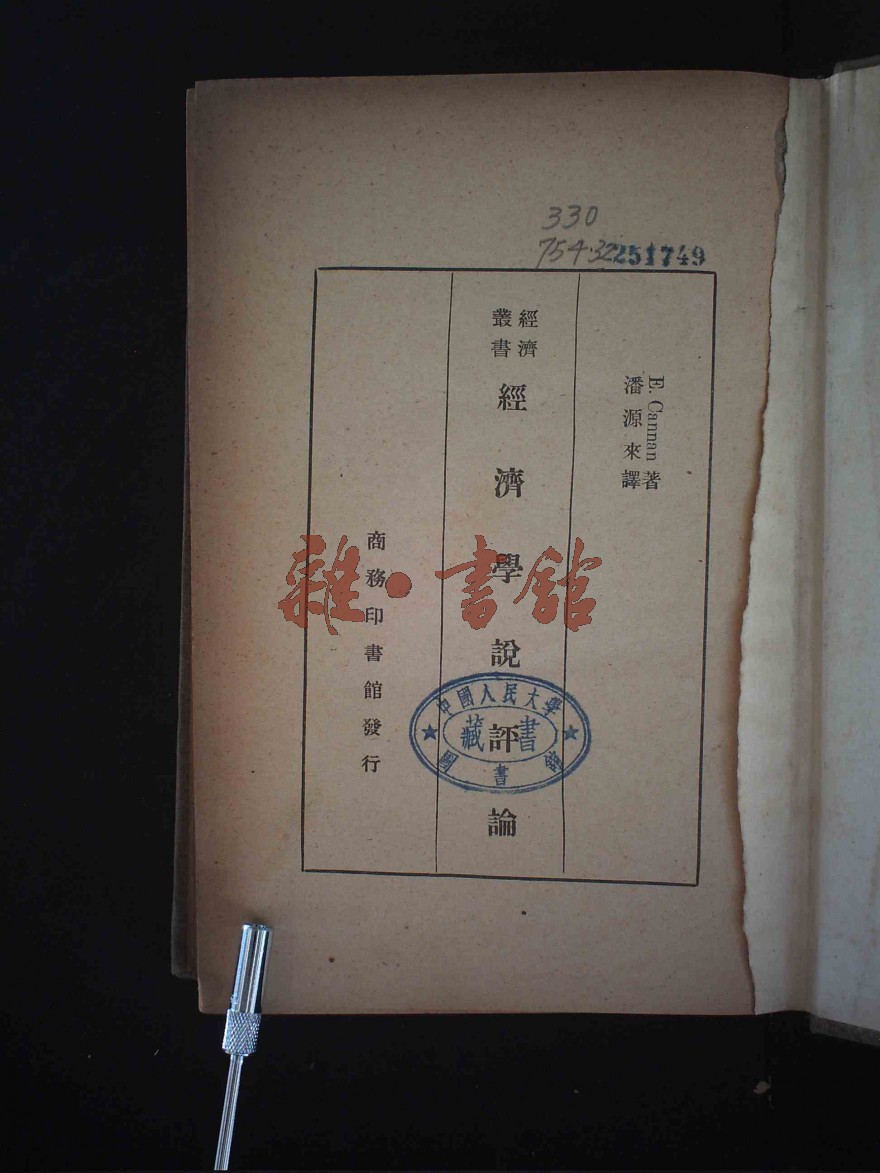 330
754·32
251749
E. Cannan 著
潘源來 譯
經濟
叢書
經濟學說評論
商務印書館發行
中國人民大學
藏書
圖書館
雜·書館